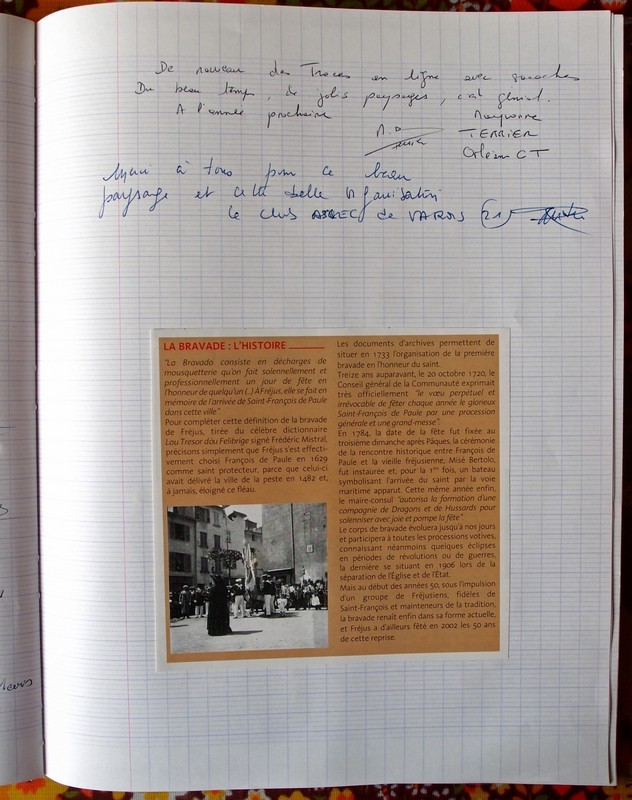 De nouveau des Traces en ligne avec
Du beau temps, de jolis paysages, c'est génial.
A l'année prochaine
TERRIER
Orléans CT
Merci à tous pour ce beau
paysage et cette belle organisation
le club de VAROIS (21)
LA BRAVADE : L'HISTOIRE
"La Bravado consiste en décharges de
mousquetterie qu'on fait solennellement et
professionnellement un jour de fête en
l'honneur de quelqu'un (..) À Fréjus, elle se fait en
mémoire de l'arrivée de Saint-François de Paule
dans cette ville".
Pour compléter cette définition de la bravade
de Fréjus, tirée du célèbre dictionnaire
Lou Tresor dóu Felibrige signé Frédéric Mistral,
précisons simplement que Fréjus s'est effecti-
vement choisi François de Paule en 1629
comme saint protecteur, parce que celui-ci
avait délivré la ville de la peste en 1482 et,
à jamais, éloigné ce fléau.
Les documents d'archives permettent de
situer en 1733 l'organisation de la première
bravade en l'honneur du saint.
Treize ans auparavant, le 20 octobre 1720, le
Conseil général de la Communauté exprimait
très officiellement "le vœu perpétuel et
irrévocable de fêter chaque année le glorieux
Saint-François de Paule par une procession
générale et une grand-messe".
En 1784, la date de la fête fut fixée au
troisième dimanche après Pâques, la cérémonie
de la rencontre historique entre François de
Paule et la vieille fréjusienne, Misé Bertolo,
fut instaurée et, pour la 1ère fois, un bateau
symbolisant l'arrivée du saint par la voie
maritime apparut. Cette même année enfin,
le maire-consul "autorisa la formation d'une
compagnie de Dragons et de Hussards pour
solenniser avec joie et pompe la fête".
Le corps de bravade évoluera jusqu'à nos jours
et participera à toutes les processions votives,
connaissant néanmoins quelques éclipses
en périodes de révolutions ou de guerres,
la dernière se situant en 1906 lors de la
séparation de l'Église et de l'État.
Mais au début des années 50, sous l'impulsion
d'un groupe de Fréjusiens, fidèles de
Saint-François et mainteneurs de la tradition,
la bravade renaît enfin dans sa forme actuelle,
et Fréjus a d'ailleurs fêté en 2002 les 50 ans
de cette reprise.